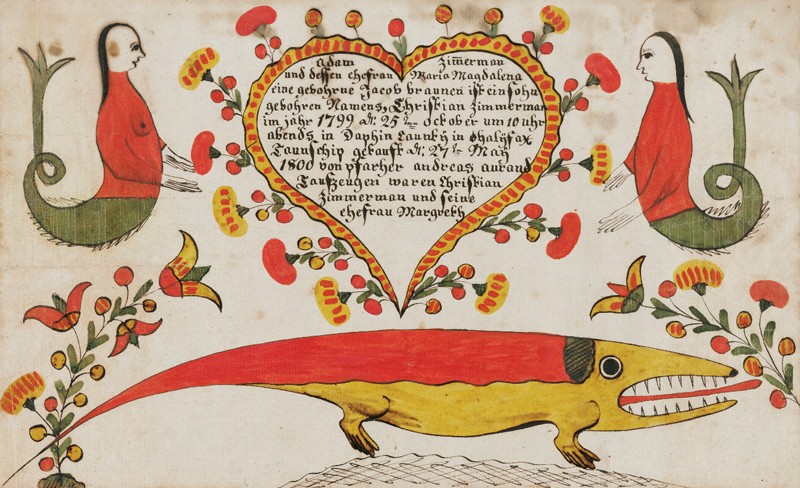 adam Zim̄erman
und dessen ehefrau Maria Magdalena
eine gebohrne Jacob braunen ist ein sohn
gebohren Namens, Christian Zimmerman
im jahr 1799 dN. 25 ten ocktober um 10 uhr
abends in Daphin Caunty in
Taunschip getauft dN. 27 te May
1800 von pfarher andreas aurand
Taufzeugen waren Christian
Zimmerman und seine
ehefrau Margreth